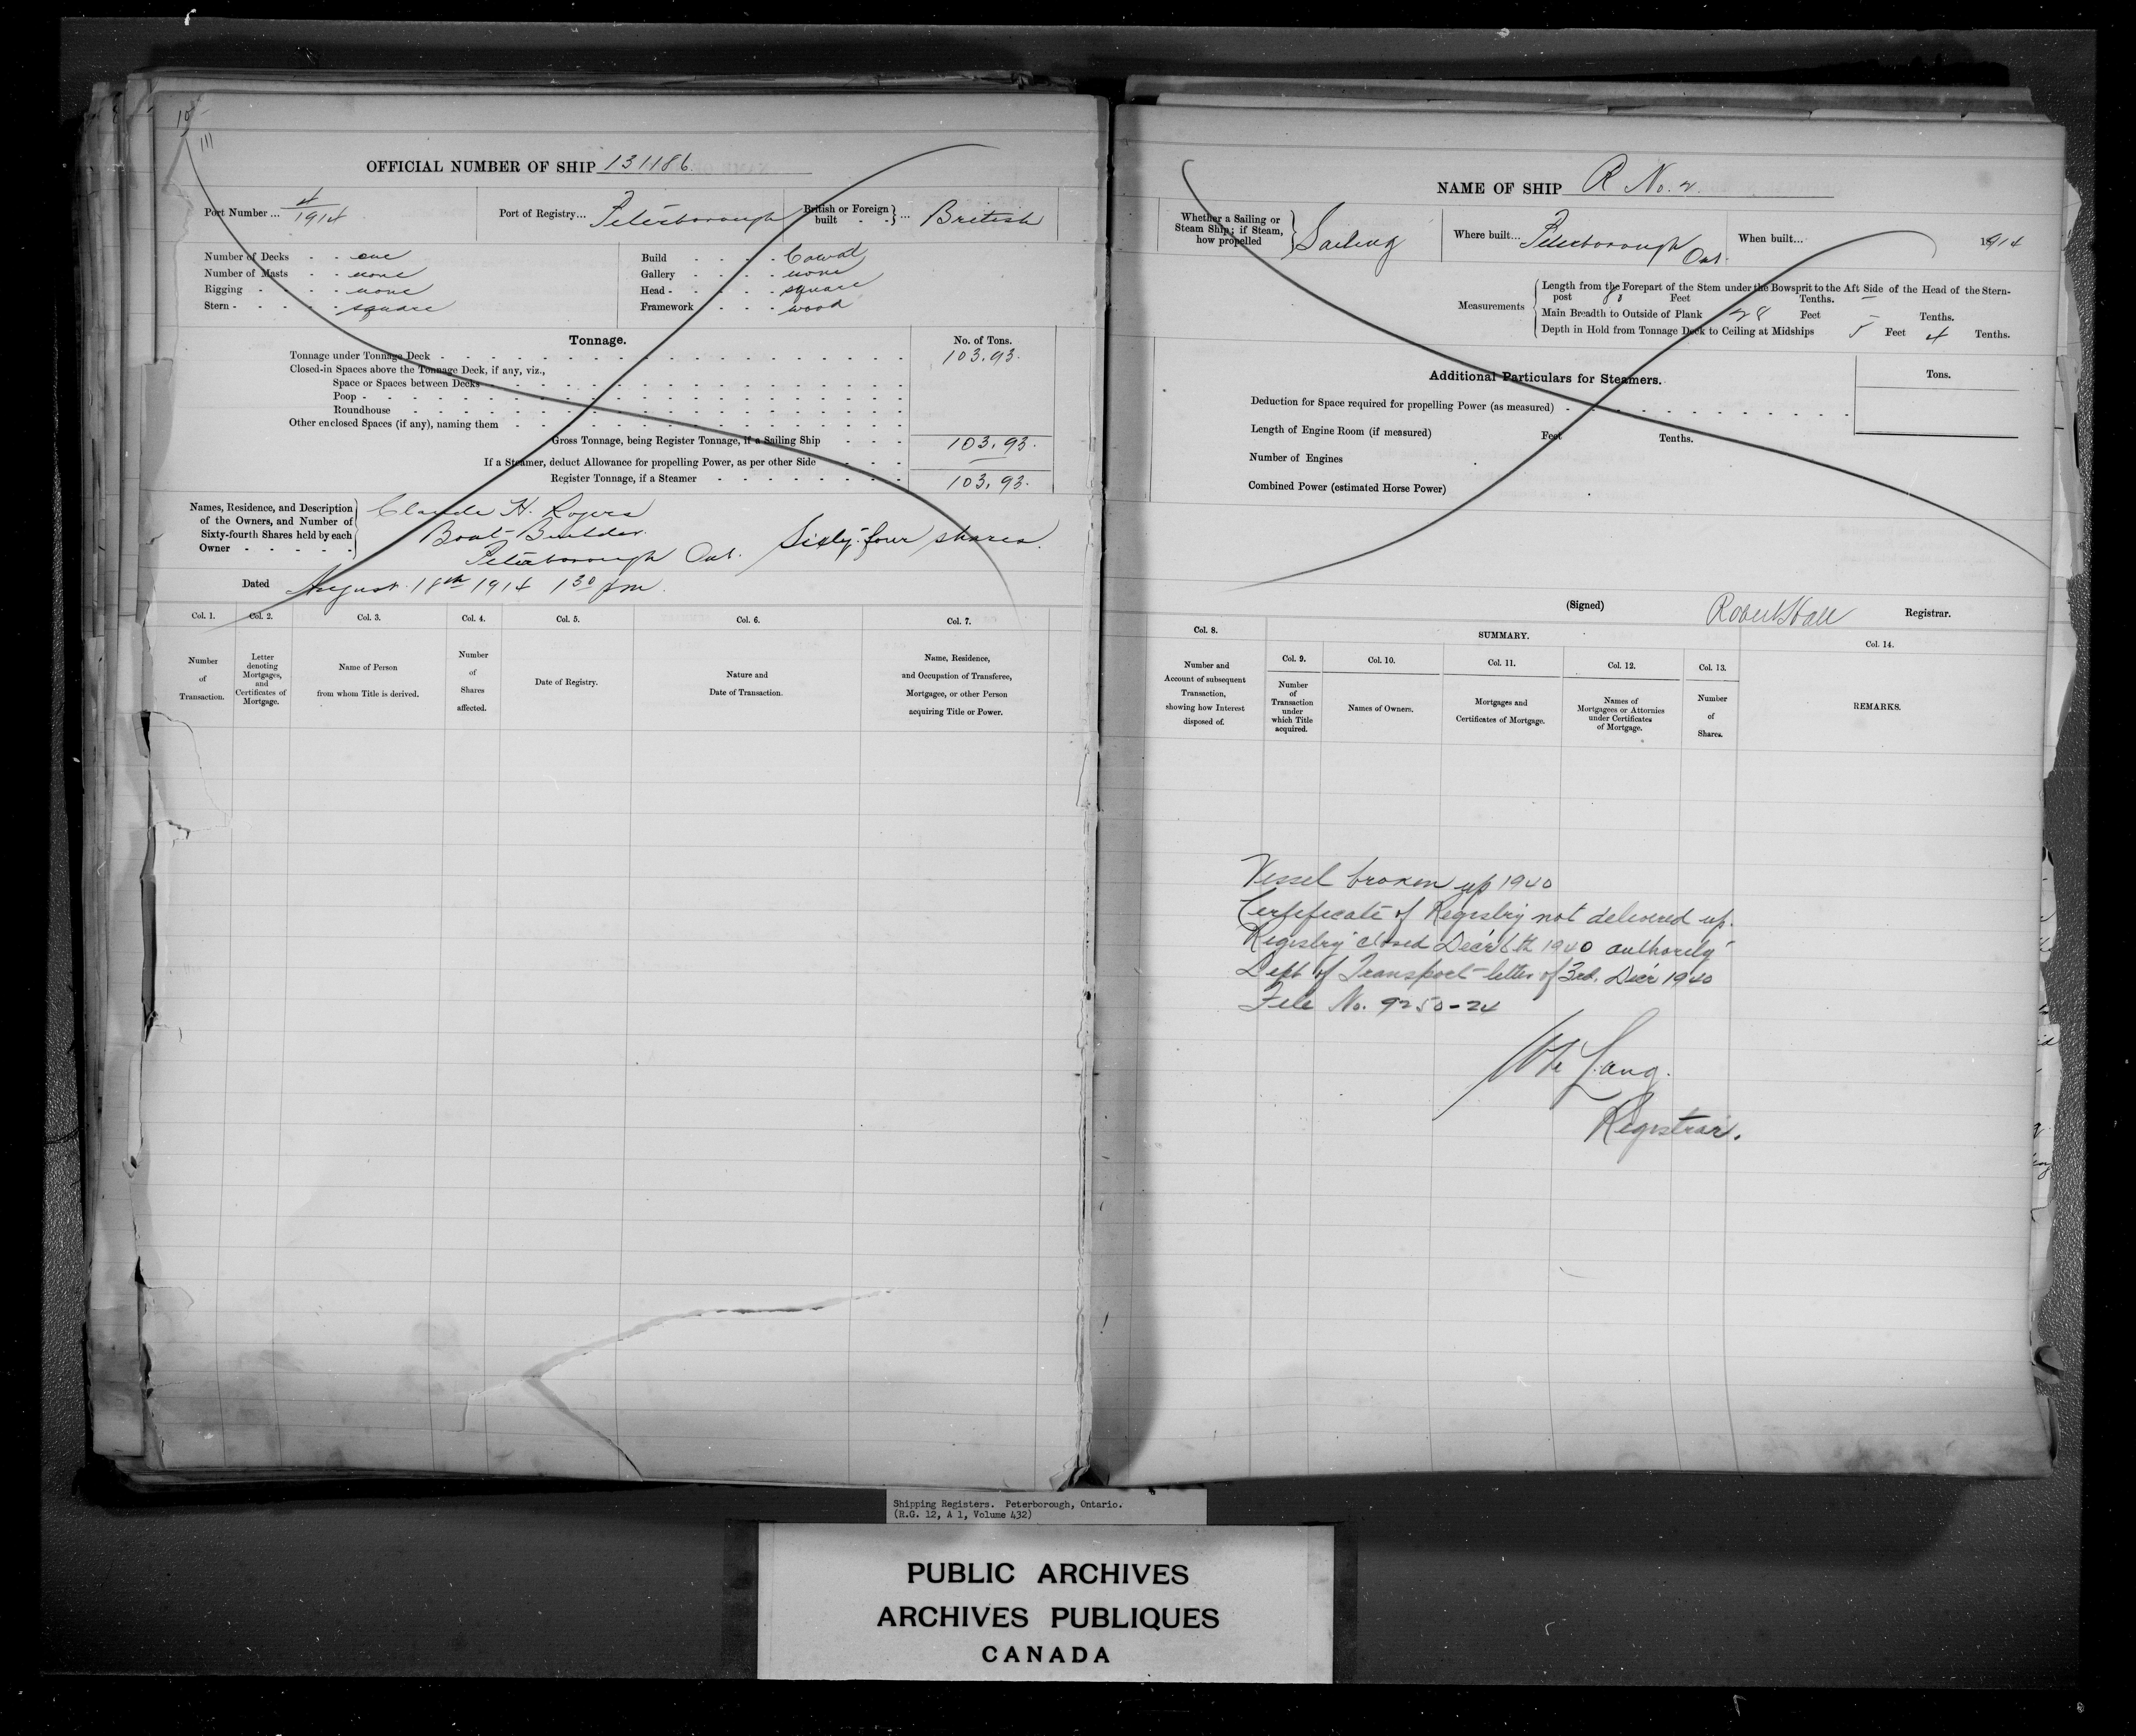 10
111
OFFICIAL NUMBER OF SHIP 131186
Port Number ... 4/1914
Port of Registry... Peterborough
British or Foreign built ... British
Number of Decks - - one
Number of Masts - - none
Rigging - - - none
Stern - - - - square
Build - - - - Cawal
Gallery - - - - none
Head - - - - square
Framework - - - wood
Tonnage.
No. of Tons.
Tonnage under Tonnage Deck 103.93.
Closed-in Spaces above the Tonnage Deck, if any, viz.,
Space or Spaces between Decks
Poop
Roundhouse
Other enclosed Spaces (if any), naming them
Gross Tonnage, being Register Tonnage, if a Sailing Ship 103.93.
If a Steamer, deduct Allowance for propelling Power, as per other Side —
Register Tonnage, if a Steamer 103.93.
Names, Residence, and Description of the Owners, and Number of Sixty-fourth Shares held by each Owner
Claude H. Rogers
Boat-Builder.
Peterborough Ont. Sixty-four shares.
Dated August 18th 1914 1 30 pm.
Col. 1.
Number of Transaction.
Col. 2.
Letter denoting Mortgages, and Certificates of Mortgage.
Col. 3.
Name of Person from whom Title is derived.
Col. 4.
Number of Shares affected.
Col. 5.
Date of Registry.
Col. 6.
Nature and Date of Transaction.
Col. 7.
Name, Residence, and Occupation of Transferee, Mortgagee, or other Person acquiring Title or Power.
NAME OF SHIP R No. 2.
Whether a Sailing or Steam Ship; if Steam, how propelled Sailing
Where built... Peterborough Ont.
When built... 1914
Measurements
Length from the Forepart of the Stem under the Bowsprit to the Aft Side of the Head of the Stern-
post Feet — Tenths.
Main Breadth to Outside of Plank 28 Feet — Tenths.
Depth in Hold from Tonnage Deck to Ceiling at Midships 5 Feet 4 Tenths.
Additional Particulars for Steamers.
Tons.
Deduction for Space required for propelling Power (as measured)
Length of Engine Room (if measured) Feet Tenths.
Number of Engines
Combined Power (estimated Horse Power)
(Signed) Robert Hall Registrar.
Col. 8.
Number and Account of subsequent Transaction, showing how Interest disposed of.
SUMMARY.
Col. 9.
Number of Transaction under which Title acquired.
Col. 10.
Names of Owners.
Col. 11.
Mortgages and Certificates of Mortgage.
Col. 12.
Names of Mortgagees or Attornies under Certificates of Mortgage.
Col. 13.
Number of Shares.
Col. 14.
REMARKS.
Vessel broken up 1940
Certificate of Registry not delivered up.
Registry closed Dec'r 6th 1940 authority
Dept of Transport letter of 3rd. Dec'r 1940
File No. 9250-24
Lang.
Registrar.
Shipping Registers. Peterborough, Ontario.
(R.G. 12, A 1, Volume 432)
PUBLIC ARCHIVES
ARCHIVES PUBLIQUES
CANADA